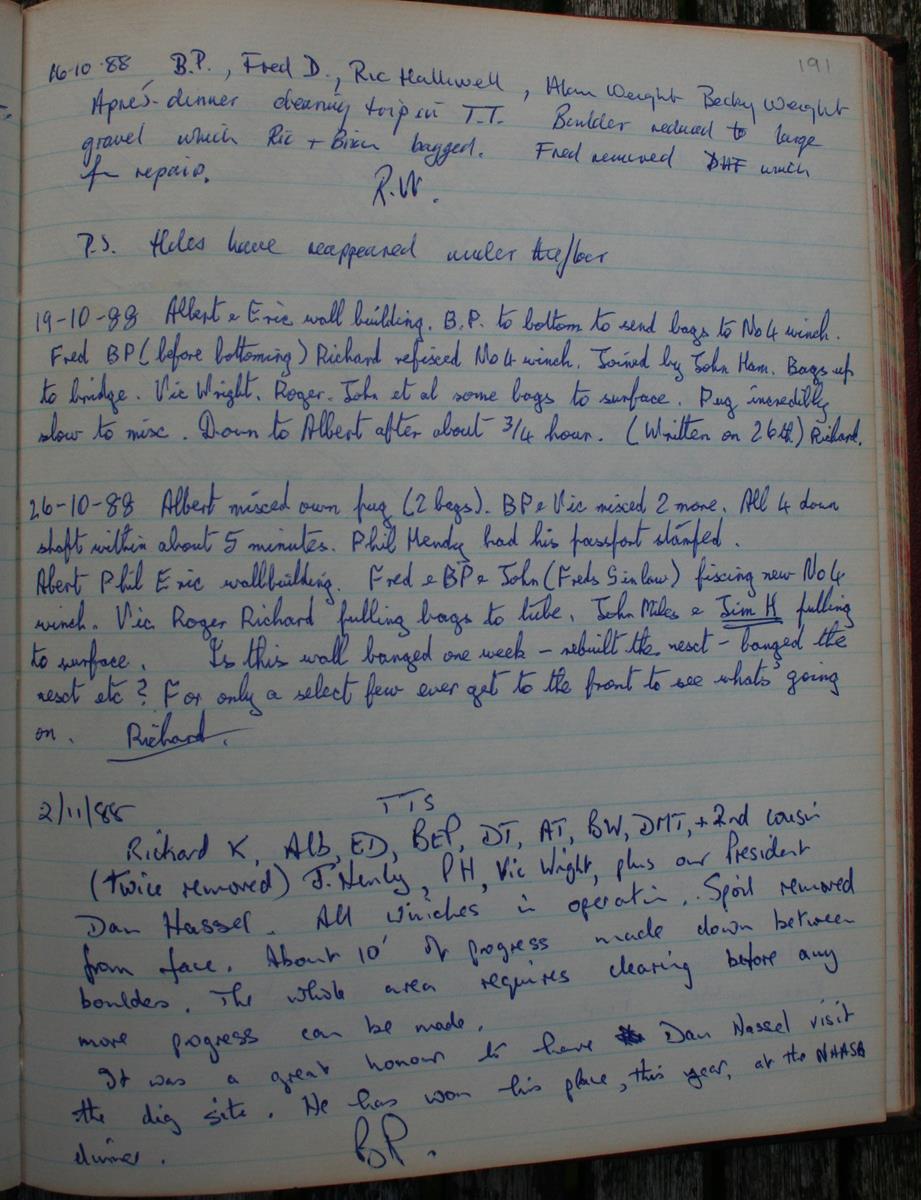 191
16-10-88 B.P., Fred D., Ric Halliwell, Alan Weight Becky Weight
Aprés-dinner clearing trip in T.T. Boulder reduced to large
gravel which Ric + Brian bagged. Fred removed winch
for repair.
R.W.
P.S. Holes have reappeared under the
19-10-88 Albert & Eric wall building. B.P. to bottom to send bags to No4 winch.
Fred BP (before bottoming) Richard refisced No4 winch. Joined by John Ham. Bags up
to bridge. Vic Wright. Roger. John et al some bags to surface. Pug incredibly
slow to misc. Down to Albert after about 3/4 hour. (Written on 26th) Richard.
26-10-88 Albert misced own pug (2 bags). BP & Vic misced 2 more. All 4 down
shaft within about 5 minutes. Phil Hendy had his passport stamped.
Abert Phil Eric wallbuilding. Fred & BP & John (Freds Sinlaw) fiscing new No4
winch. Vic Roger Richard pulling bags to tube. John Miles & Jim H pulling
to surface. Is this wall banged one week - rebuilt the nesct - banged the
nesct etc? For only a select few ever get to the front to see whats going
on. Richard.
2/11/88 TTS
Richard K, Alb, ED, BEP, DT, AT, BW, DMT, + 2nd cousin
(twice removed) J. Henly, PH, Vic Wright, plus our President
Dan Hassel. All winches in operation. Spoil removed
from face. About 10' of progress made down between
boulders. The whole area requires clearing before any
more progress can be made.
It was a great honour to have Dan Hassel visit
the dig site. He has won his place, this year, at the NHASA
dinner. BP.